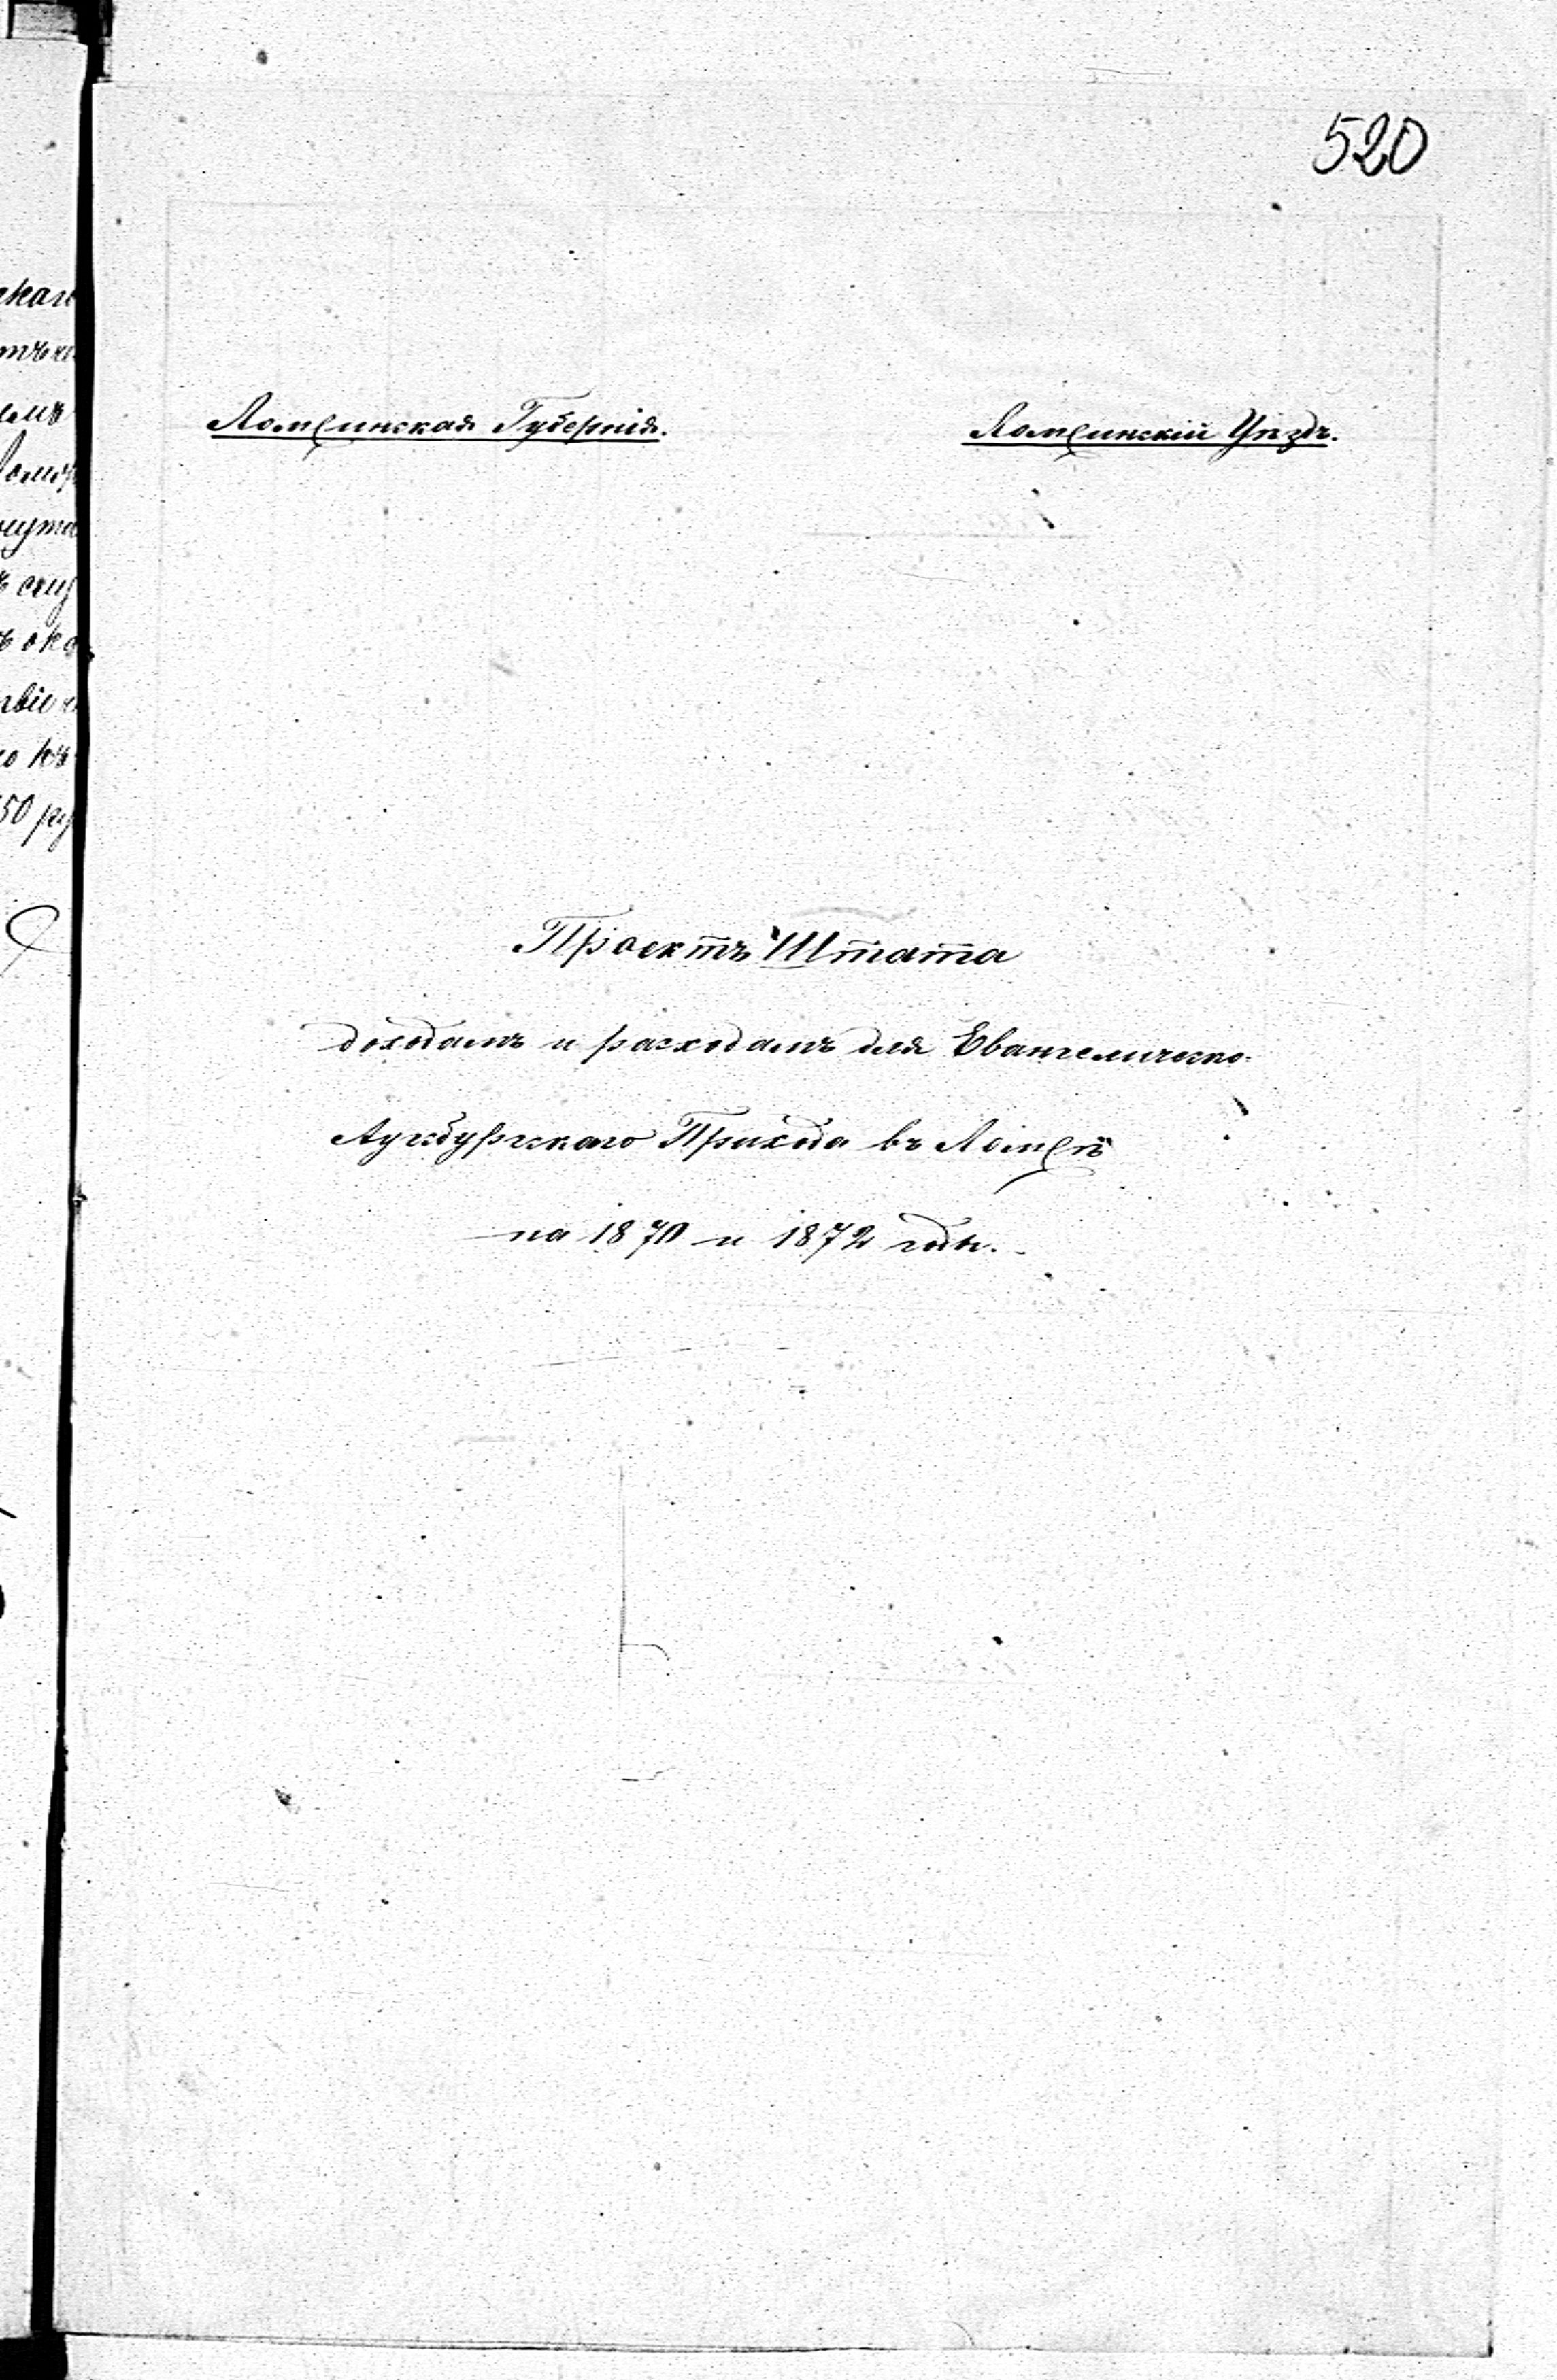 520
Ломжинская Губернія.
Ломжинскій Уѣздъ.
Проектъ Штата
доходамъ и расходамъ для Евангелическо-
Аугсбургскаго Прихода въ Ломжѣ
на 1870 и 1872 годы.
50 ру